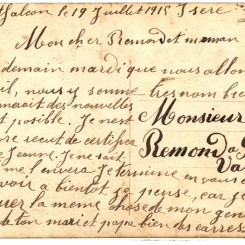 Salon le 19 Juillet 1915 Isère
Mon cher Remond et maman
demain mardi que nous allon
il, nous y somme tres nom bre
des nouvelles
et posible. Je nest
recut de certifica
Jeanne. Je ne sait
me l'envera. Je termine en vous
voir a bientot je pense, car je
la meme chose de mon gen
de ton mari et papa bien des carress
Monsieur
Remond